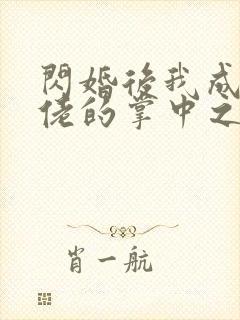 閃婚後我成
佬的掌中之
肖一航